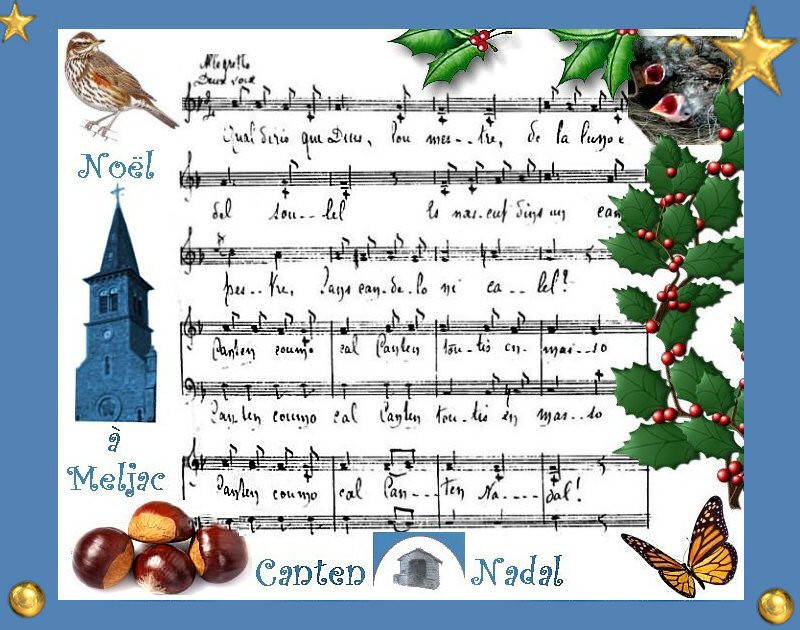 Allegretto
Deux voix
Qual dirio que Dieus, lou mes--tre, de la luno e
del sou--lel Es nascut dins un cam
pes--tre, Sans can-de-lo ni ca--lel!
Noël
Canten coumo cal Canten tou-tis en mas-so
Canten coumo cal Canten tou-tis en mas--so
à
Meljac
Canten coumo cal Can---ten Na----dal!
Canten Nadal